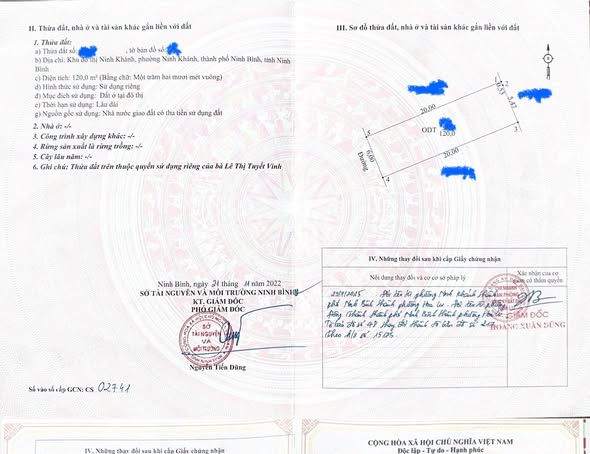 II. Thửa đất, nhà ở và tài sản khác gắn liền với đất
1. Thửa đất:
a) Thửa đất số: , tờ bản đồ số:
b) Địa chỉ: Khu đô thị Ninh Khánh, phường Ninh Khánh, thành phố Ninh Bình, tỉnh Ninh
Bình
c) Diện tích: 120,0 m² (Bằng chữ: Một trăm hai mươi mét vuông)
d) Hình thức sử dụng: Sử dụng riêng
đ) Mục đích sử dụng: Đất ở tại đô thị
e) Thời hạn sử dụng: Lâu dài
g) Nguồn gốc sử dụng: Nhà nước giao đất có thu tiền sử dụng đất
2. Nhà ở: -/-
3. Công trình xây dựng khác: -/-
4. Rừng sản xuất là rừng trồng: -/-
5. Cây lâu năm: -/-
6. Ghi chú: Thửa đất trên thuộc quyền sử dụng riêng của bà Lê Thị Tuyết Vinh
Ninh Bình, ngày 21 tháng 11 năm 2022
SỞ TÀI NGUYÊN VÀ MÔI TRƯỜNG NINH BÌNH
KT. GIÁM ĐỐC
PHÓ GIÁM ĐỐC
SỞ
TÀI NGUYÊN
VÀ
MÔI TRƯỜNG
Nguyễn Tiến Dũng
Số vào sổ cấp GCN: CS 02741
III. Sơ đồ thửa đất, nhà ở và tài sản khác gắn liền với đất
1
2
0.53
5.47
20.00
ODT
120,0
3
5
6.00
Đường
20.00
4
IV. Những thay đổi sau khi cấp Giấy chứng nhận
Nội dung thay đổi và cơ sở pháp lý
Xác nhận của cơ
quan có thẩm quyền
GIÁM ĐỐC
HOÀNG XUÂN DŨNG
IV. Những thay đổi sau khi cấp Giấy chứng nhận
CỘNG HÒA XÃ HỘI CHỦ NGHĨA VIỆT NAM
Độc lập - Tự do - Hạnh phúc